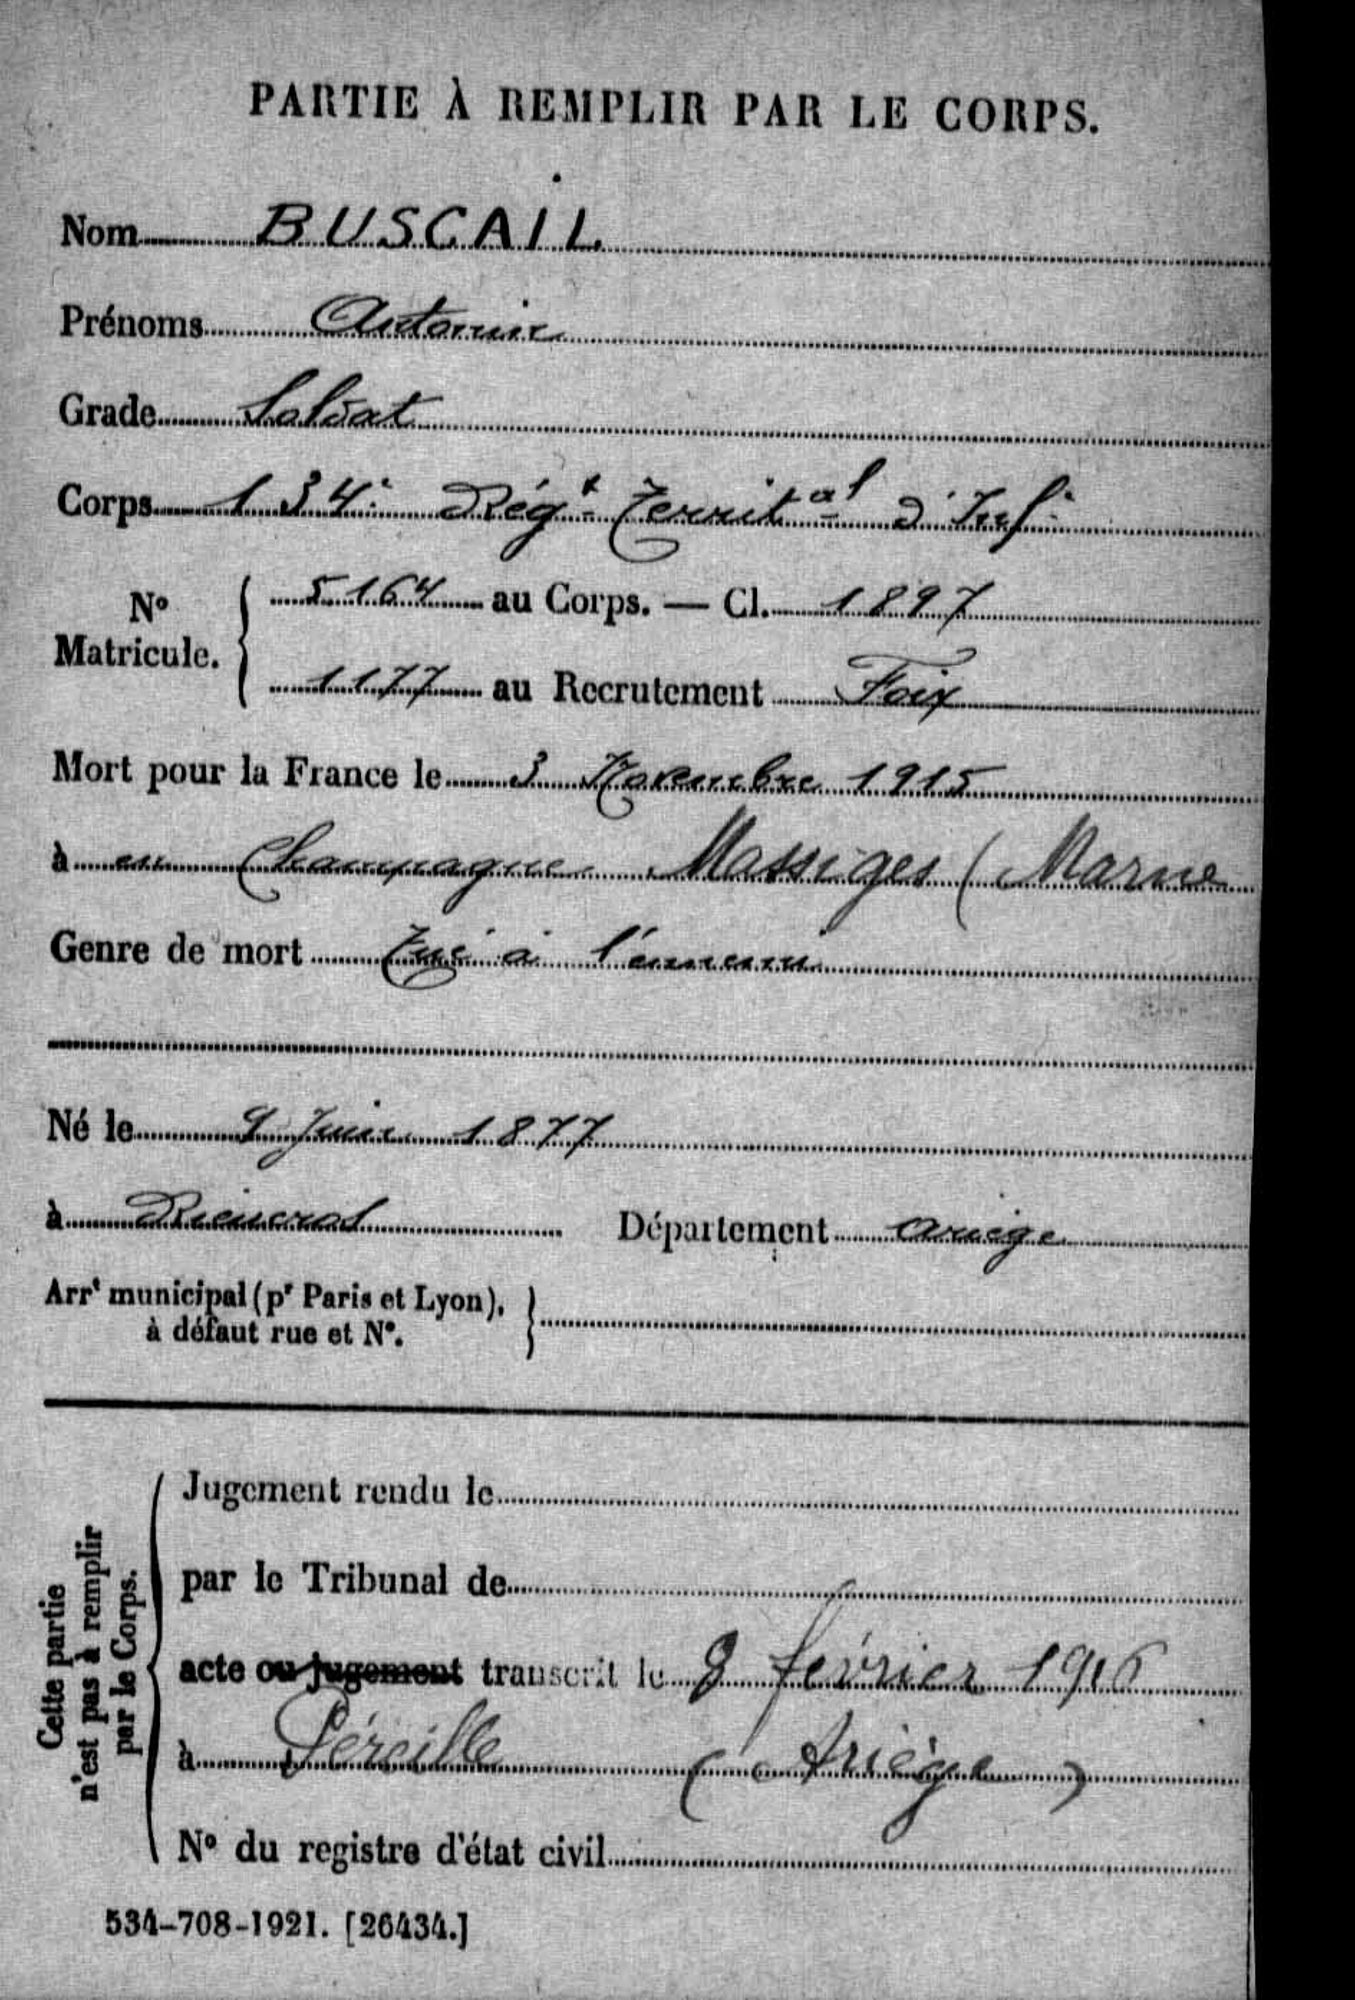 PARTIE À REMPLIR PAR LE CORPS.
Nom BUSCAIL
Prénoms Antonin
Grade Soldat
Corps 134e Régt Territal d'Inf.
No Matricule. 5164 au Corps. — Cl. 1897
1177 au Recrutement Foix
Mort pour la France le 3 Novembre 1915
à en Champagne Massiges (Marne
Genre de mort Tué à l'ennemi
Né le 9 Juin 1877
à Rieucros Département Ariège
Arrt municipal (pr Paris et Lyon),
à défaut rue et No.
Cette partie
n'est pas à remplir
par le Corps.
Jugement rendu le
par le Tribunal de
acte ou jugement transcrit le 8 février 1916
à Péreille (Ariège)
No du registre d'état civil
534-708-1921. [26434.]